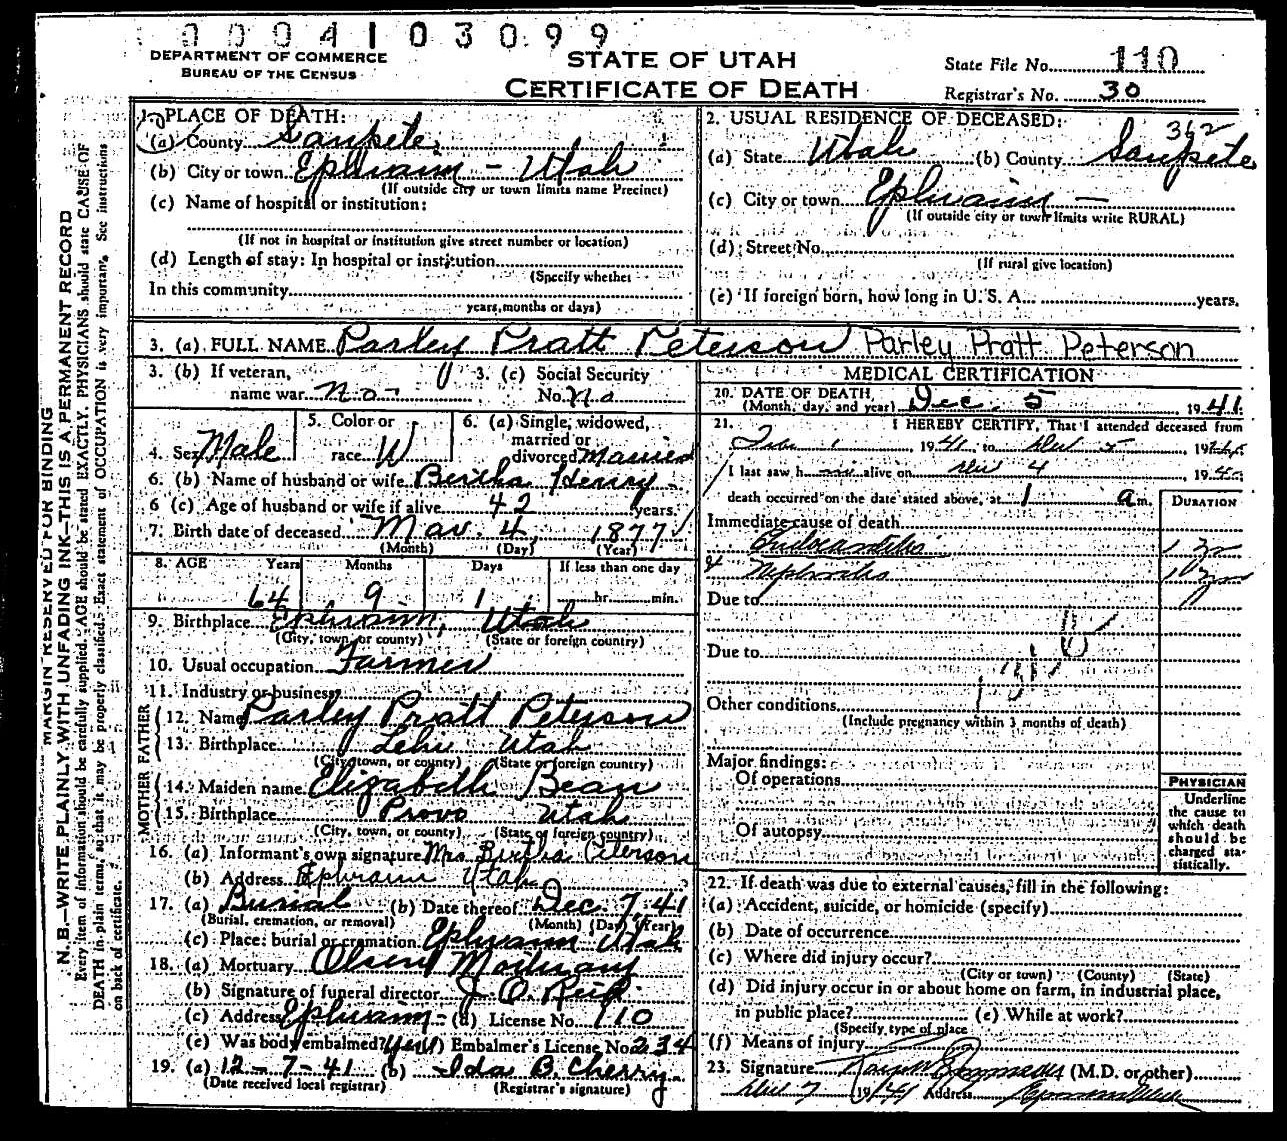 0004103099
DEPARTMENT OF COMMERCE
BUREAU OF THE CENSUS
STATE OF UTAH
CERTIFICATE OF DEATH
State File No. 110
Registrar's No. 30
MARGIN RESERVED FOR BINDING
N. B.—WRITE PLAINLY WITH UNFADING INK—THIS IS A PERMANENT RECORD
Every item of information should be carefully supplied. AGE should be stated EXACTLY. PHYSICIANS should state CAUSE OF
DEATH in plain terms, so that it may be properly classified. Exact statement of OCCUPATION is very important. See instructions
on back of certificate.
1. PLACE OF DEATH:
(a) County Sanpete
(b) City or town Ephraim - Utah
(If outside city or town limits name Precinct)
(c) Name of hospital or institution:
(If not in hospital or institution give street number or location)
(d) Length of stay: In hospital or institution
(Specify whether
In this community
years, months or days)
2. USUAL RESIDENCE OF DECEASED:
362
(a) State Utah (b) County Sanpete
(c) City or town Ephraim -
(If outside city or town limits write RURAL)
(d) Street No.
(If rural give location)
(e) If foreign born, how long in U. S. A. years.
3. (a) FULL NAME Parley Pratt Peterson Parley Pratt Peterson
3. (b) If veteran, name war No 3. (c) Social Security No. No
4. Sex Male 5. Color or race W 6. (a) Single, widowed, married or divorced Married
6. (b) Name of husband or wife Bertha Henry
6 (c) Age of husband or wife if alive 42 years.
7. Birth date of deceased Mar. 4, 1877
(Month) (Day) (Year)
8. AGE Years Months Days If less than one day
64 9 1 hr. min.
9. Birthplace Ephraim, Utah
(City, town, or county) (State or foreign country)
10. Usual occupation Farmer
11. Industry or business
FATHER
12. Name Parley Pratt Peterson
13. Birthplace Lehi Utah
(City, town, or county) (State or foreign country)
MOTHER
14. Maiden name Elizabeth Bean
15. Birthplace Provo Utah
(City, town, or county) (State or foreign country)
16. (a) Informant's own signature Mrs Bertha Peterson
(b) Address Ephraim Utah
17. (a) Burial (b) Date thereof Dec. 7, 41
(Burial, cremation, or removal) (Month) (Day) (Year)
(c) Place: burial or cremation Ephraim Utah
18. (a) Mortuary Olsen Mortuary
(b) Signature of funeral director J. O.
(c) Address Ephraim - (d) License No. 110
(e) Was body embalmed? Yes (f) Embalmer's License No. 234
19. (a) 12-7-41 (b) Ida B. Cherry
(Date received local registrar) (Registrar's signature)
MEDICAL CERTIFICATION
20. DATE OF DEATH
(Month, day, and year) Dec. 5 1941
21. I HEREBY CERTIFY, That I attended deceased from
1 1941, to Dec 5, 19
I last saw h alive on Dec 4 19
death occurred on the date stated above, at 1 a m.
DURATION
Immediate cause of death
Endocarditis 1 yr
& Nephritis 1 yr
Due to
Due to
Other conditions
(Include pregnancy within 3 months of death)
Major findings:
Of operations
Of autopsy
PHYSICIAN
Underline
the cause to
which death
should be
charged sta-
tistically.
22. If death was due to external causes, fill in the following:
(a) Accident, suicide, or homicide (specify)
(b) Date of occurrence
(c) Where did injury occur?
(City or town) (County) (State)
(d) Did injury occur in or about home on farm, in industrial place,
in public place? (e) While at work?
(Specify type of place
(f) Means of injury
23. Signature (M.D. or other)
Dec 7 1941 Address